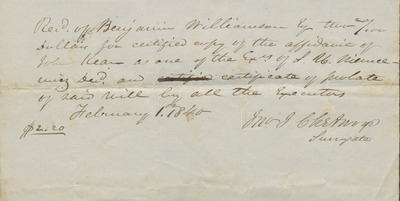 Recd. of Benjamin Williamson Esq two 7/100
Dollars for certified copy of the affidavit of
John Kean as one of the Exrs of J. U. Niemce-
wicz Decd. and certificate of probate
of said will by all the Executors
February 1. 1840
$2.20
Surrogate